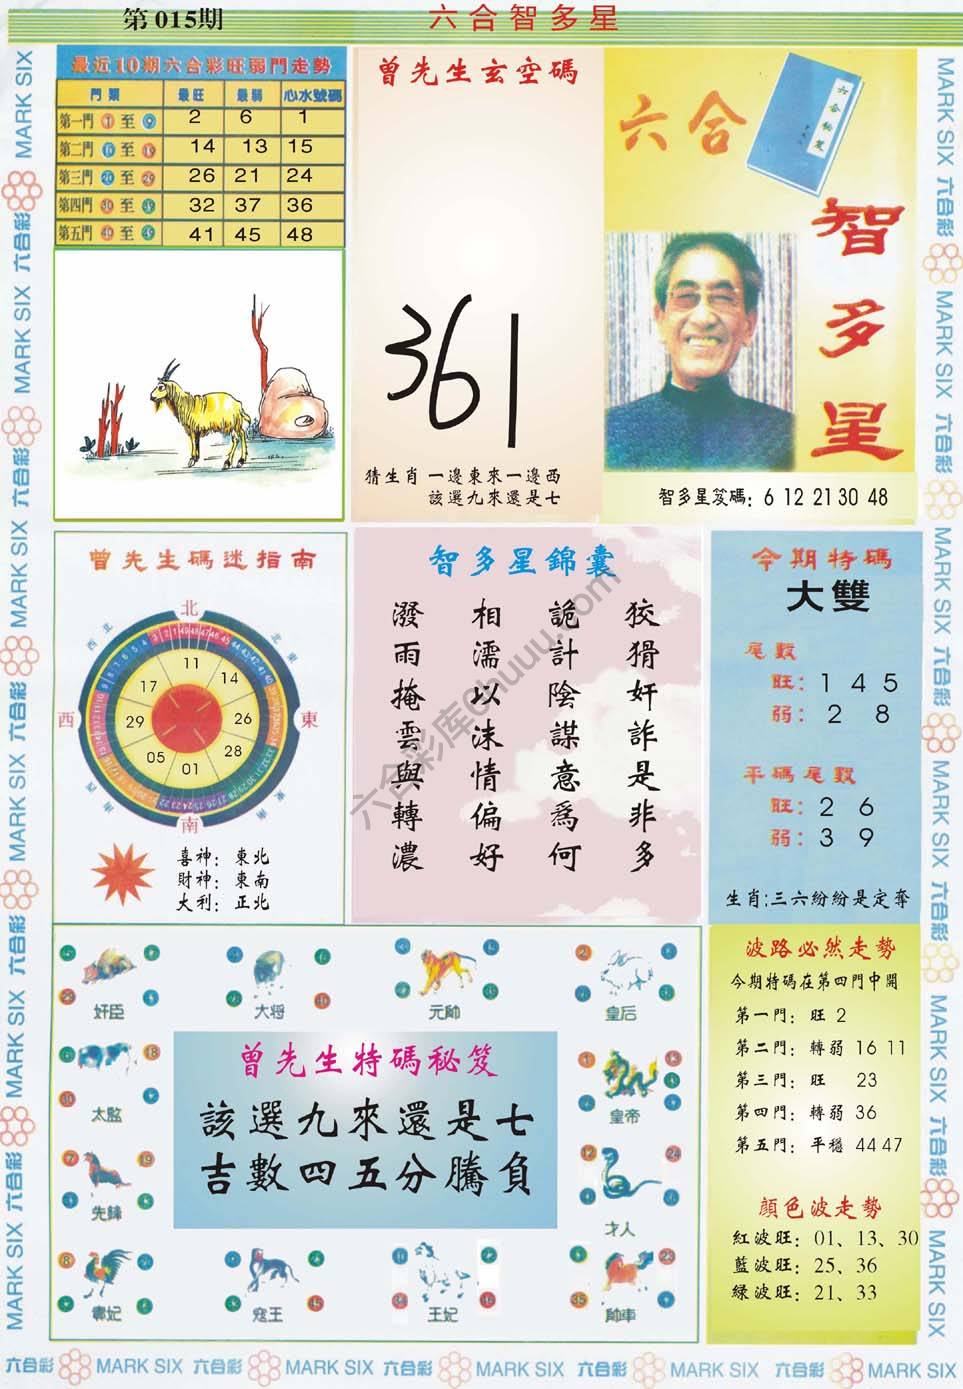 第 015期
六合智多星
最近10期六合彩旺弱門走勢
門類 最旺 最弱 心水號碼
第一門 1 至 9 2 6 1
第二門 10 至 19 14 13 15
第三門 20 至 29 26 21 24
第四門 30 至 39 32 37 36
第五門 40 至 49 41 45 48
曾先生玄空碼
361
猜生肖 一邊東來一邊西
該選九來還是七
六合
六合秘笈
智多星
智多星笈碼: 6 12 21 30 48
曾先生碼迷指南
北
西北
北東
西
東
西南
東南
南
11
14
26
28
01
05
29
17
喜神: 東北
財神: 東南
大利: 正北
智多星錦囊
狡猾奸詐是非多
詭計陰謀意為何
相濡以沫情偏好
潑雨掩雲與轉濃
今期特碼
大雙
尾數
旺: 1 4 5
弱: 2 8
平碼尾數
旺: 2 6
弱: 3 9
生肖:三六紛紛是定奪
奸臣
大将
元帥
皇后
太監
皇帝
先鋒
才人
寇王
王妃
帥車
曾先生特碼秘笈
該選九來還是七
吉數四五分騰負
波路必然走勢
今期特碼在第四門中開
第一門: 旺 2
第二門: 轉弱 16 11
第三門: 旺 23
第四門: 轉弱 36
第五門: 平穩 44 47
顔色波走勢
紅波旺: 01、13、30
藍波旺: 25、36
緑波旺: 21、33
六合彩库6huuu.com
MARK SIX 六合彩 MARK SIX 六合彩 MARK SIX 六合彩 MARK SIX 六合彩 MARK SIX 六合彩 MARK SIX
MARK SIX 六合彩 MARK SIX 六合彩 MARK SIX 六合彩 MARK SIX 六合彩 MARK SIX 六合彩 MARK SIX
六合彩 MARK SIX 六合彩 MARK SIX 六合彩 MARK SIX 六合彩 MARK SIX 六合彩 MARK SIX